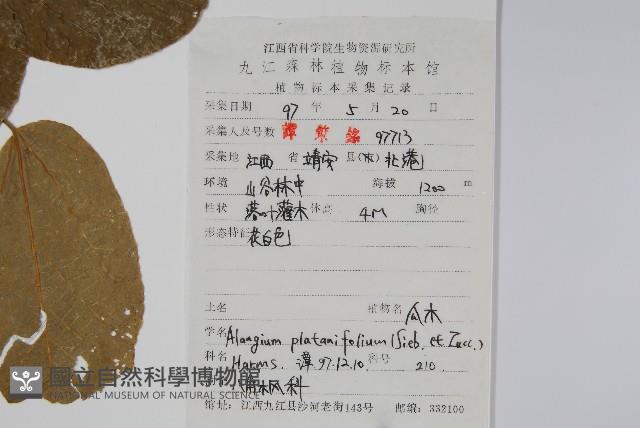 江西省科学院生物资源研究所
九江森林植物标本馆
植物标本采集记录
采集日期 97 年 5 月 20 日
采集人及号数 譚策銘 97713
采集地 江西 省 靖安 县(市) 北港
环境 山谷林中 海拔 1200 m
性状 落叶灌木 体高 4M 胸径
形态特征 花白色
土名 植物名 瓜木
学名 Alangium platanifolium (Sieb. et Zucc.)
科名 Harms. 譚 97.12.10. 科号 210
枫科
馆址：江西九江县沙河老街143号 邮编：332100
國立自然科學博物館
NATIONAL MUSEUM OF NATURAL SCIENCE